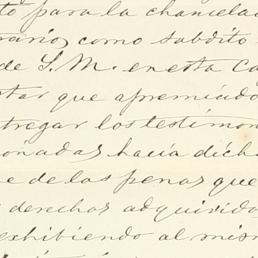 to para la chancelac
rario, como subdito
de S. M. en esta Ca
tar que apremiado
tregar los testimon
onadas hacia dicho
e de las penas que
derechos adquirido
exhibiendo al mism